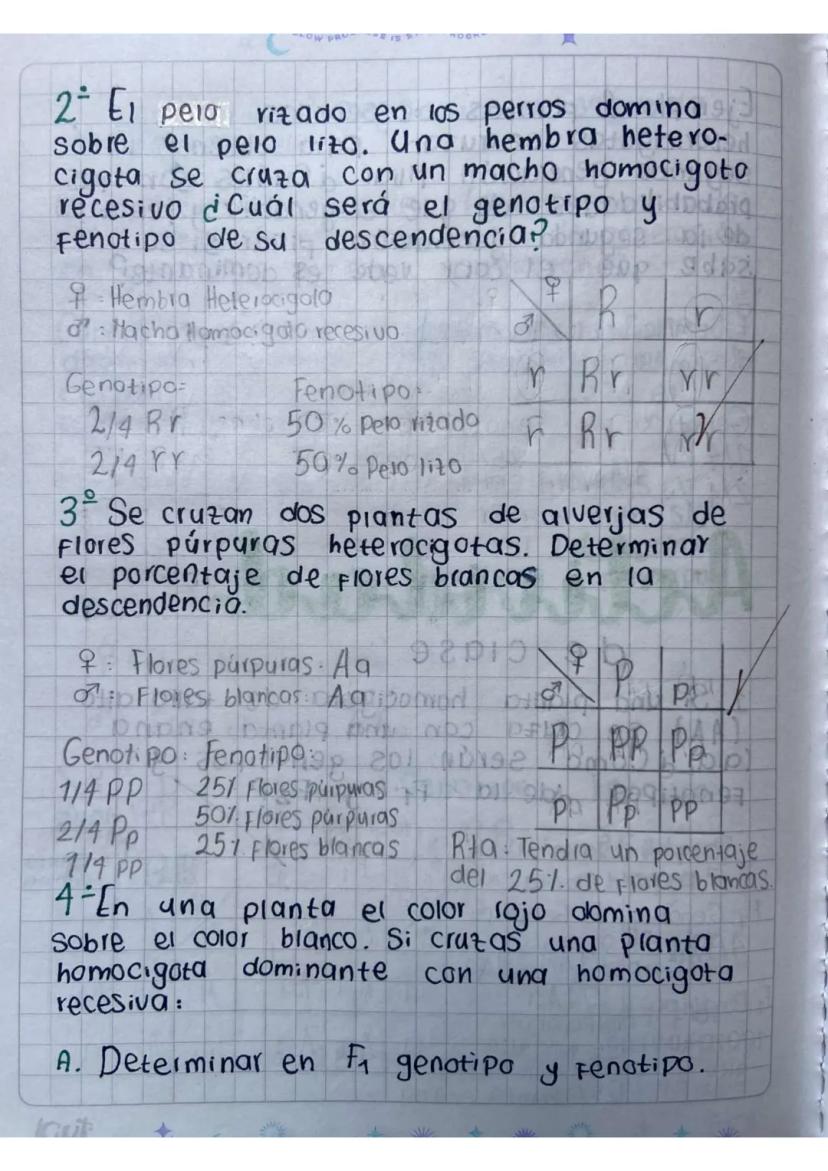 2÷ El pelo rizado en los perros domina
sobre el pelo lizo. Una hembra hetero-
cigota se cruza con un macho homocigoto
recesivo ¿Cuál será el genotipo y
Fenotipo de su descendencia?
♀: Hembra Heterocigoto
♂: Macho Homocigoto recesivo
♀ R r
♂
r Rr rr
r Rr rr
Genotipo: Fenotipo:
2/4 Rr 50% Pelo rizado
2/4 rr 50% Pelo lizo
3º Se cruzan dos plantas de alverjas de
Flores púrpuras heterocgotas. Determinar
el porcentaje de Flores brancas en la
descendencia.
♀: Flores púrpuras. Aa
♂: Flores blancas: Aa
♀ P p
♂
P PP Pp
p Pp pp
Genotipo: Fenotipo:
1/4 PP 25% Flores púrpuras
2/4 Pp 50% Flores púrpuras
1/4 pp 25% Flores blancas
Rta: Tendra un porcentaje
del 25% de Flores blancas.
4÷ En una planta el color rojo domina
sobre el color blanco. Si cruzas una planta
homocigota dominante con una homocigota
recesiva:
A. Determinar en F1 genotipo y Fenotipo.